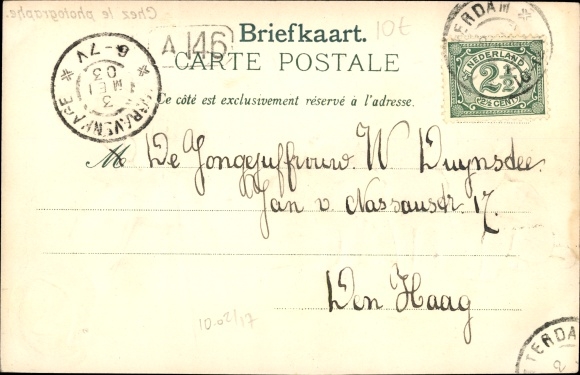 Chez le photographe.
10t
Briefkaart.
A 146
CARTE POSTALE
Ce côté est exclusivement réservé à l'adresse.
'S GRAVENHAGE
6-7V
3
MEI
03
TERDAM
NEDERLAND
2½
2½ CENT
M De Jongejuffrouw. W Duynsdee.
Jan v. Nassaustr. 17.
Den Haag
10.02/17
TTERDA
2